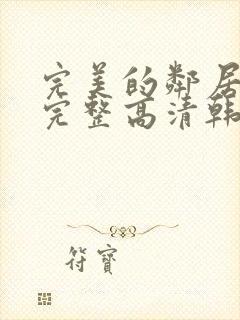 完美的邻居
完整高清韩
符寶